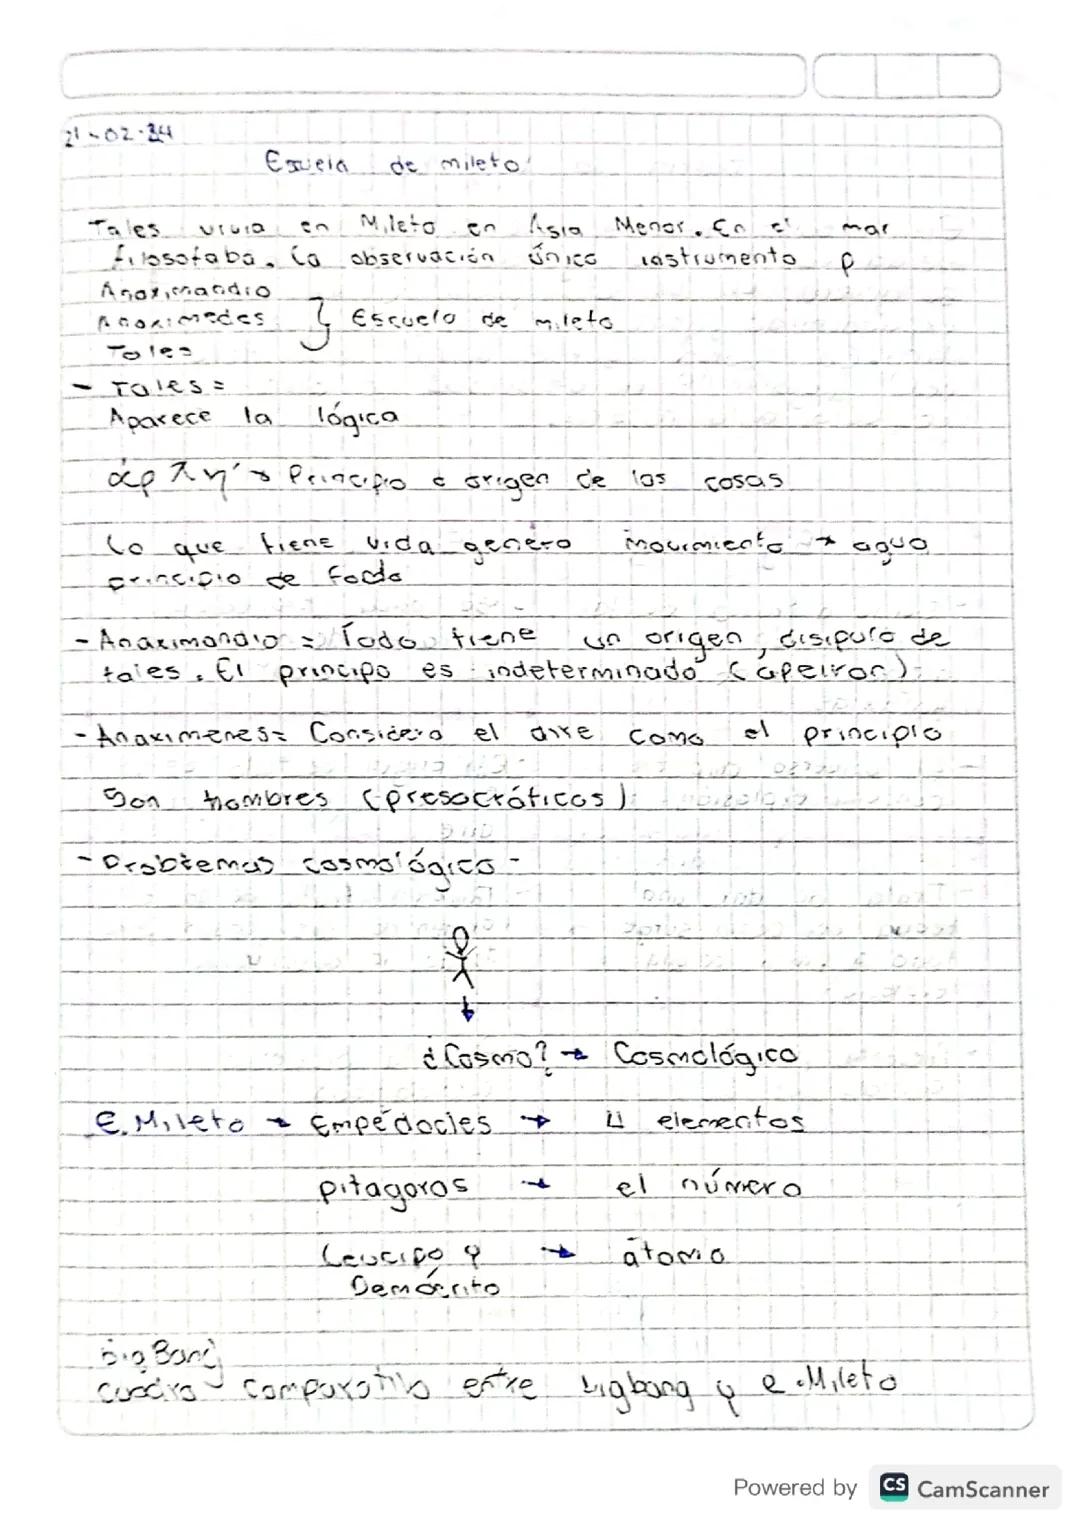 21-02-24
Escuela de mileto
Tales vivia en Mileto en Asia Menor. En el mar
filosofaba. La observación único instrumento p
Anaximandro
Anaximedes } Escuela de mileto
Tales
- Tales =
Aparece la lógica
άρχή → Principio o origen de las cosas
Lo que tiene vida genera movimiento → agua
principio de todo
- Anaximandro = Todo tiene un origen, disipulo de
tales. El principo es indeterminado (apeiron)
- Anaximenes = Considera el aire como el principio
Son hombres (presocráticos)
- Problemas cosmológico -
¿Cosmo? → Cosmológico
E. Mileto → Empédocles → 4 elementos
pitagoras → el número
Leucipo y → átomo
Demócrito
Big Bang
Cuadro comparativo entre bigbang y e. Mileto
Powered by CS CamScanner